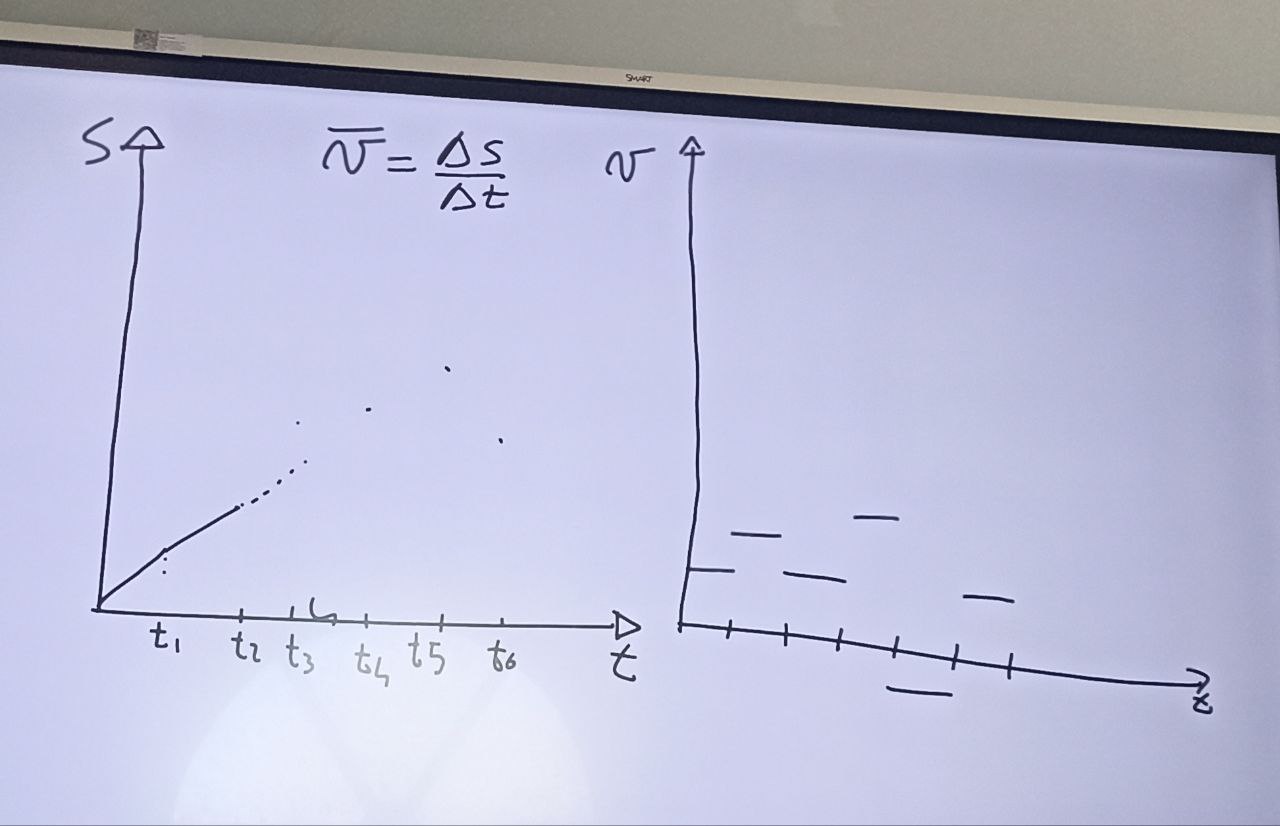 SMART
S
v̄ = Δs
Δt
v
t₁ t₂ t₃ t₄ t5 t₆ t
t